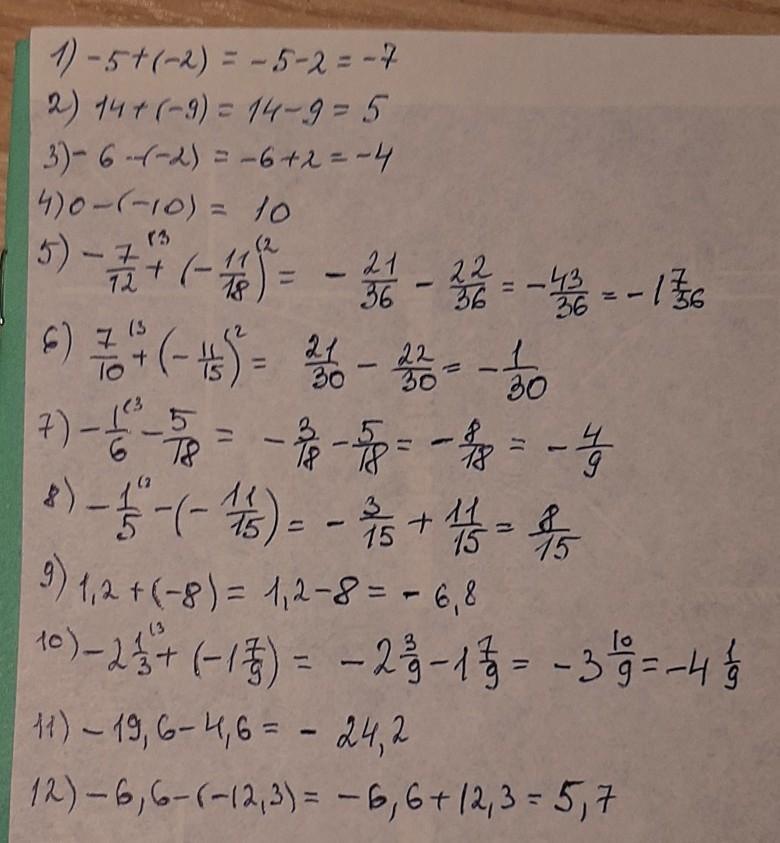 1) -5+(-2) = -5-2 = -7
2) 14+(-9) = 14-9 = 5
3) -6-(-2) = -6+2 = -4
4) 0-(-10) = 10
5) -7/12 (3 + (-11/18) (2 = -21/36 - 22/36 = -43/36 = -1 7/36
6) 7/10 (3 + (-11/15) (2 = 21/30 - 22/30 = -1/30
7) -1/6 (3 - 5/18 = -3/18 - 5/18 = -8/18 = -4/9
8) -1/5 (3 - (-11/15) = -3/15 + 11/15 = 8/15
9) 1,2+(-8) = 1,2-8 = -6,8
10) -2 1/3 (3 + (-1 7/9) = -2 3/9 - 1 7/9 = -3 10/9 = -4 1/9
11) -19,6-4,6 = -24,2
12) -6,6-(-12,3) = -6,6+12,3 = 5,7